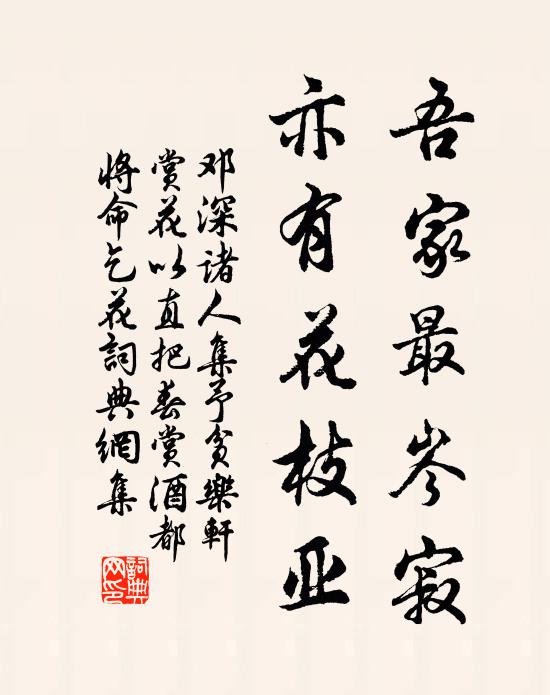 吾家最岑寂
亦有花枝亚
邓深诸人集予贫樂軒
赏花以直把春赏酒都
将命乞花詞典網集
詞典网印